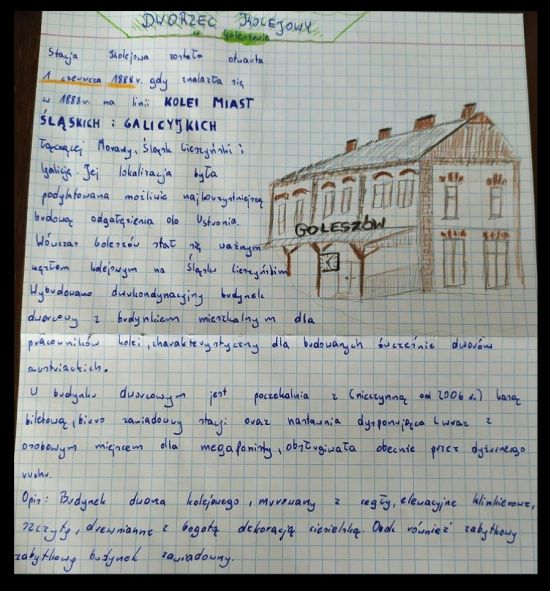 DWORZEC KOLEJOWY
w Goleszowie
Stacja kolejowa została otwarta
1 czerwca 1888r. gdy znalazła się
w 1888r. na linii KOLEI MIAST
ŚLĄSKICH i GALICYJKICH
łączącej Morawy, Śląsk Cieszyński i
Galicję. Jej lokalizacja była
podyktowana możliwie najkorzystniejszą
budową odgałęzienia do Ustronia.
Wówczas Goleszów stał się ważnym
węzłem kolejowym na Śląsku Cieszyńskim
Wybudowano dwukondynacyjny budynek
dworcowy z budynkiem mieszkalnym dla
pracowników kolei, charakterystyczny dla budowanych ówcześnie dworów
austriackich.
W budynku dworcowym jest poczekalnia z (nieczynną od 2006 r.) kasą
biletową, biuro zawiadowcy stacji oraz nastawnia dysponująca (wraz z
osobowym miejscem dla megafonisty, obsługiwała obecnie przez dyżurnego
ruchu.
Opis: Budynek dworca kolejowego, murowany z cegły, elewacyjne klinkierowe,
szczyty, drewnianne z bogatą dekoracją ciesielką. Obok również zabytkowy
zabytkowy budynek zawiadowny.
GOLESZÓW